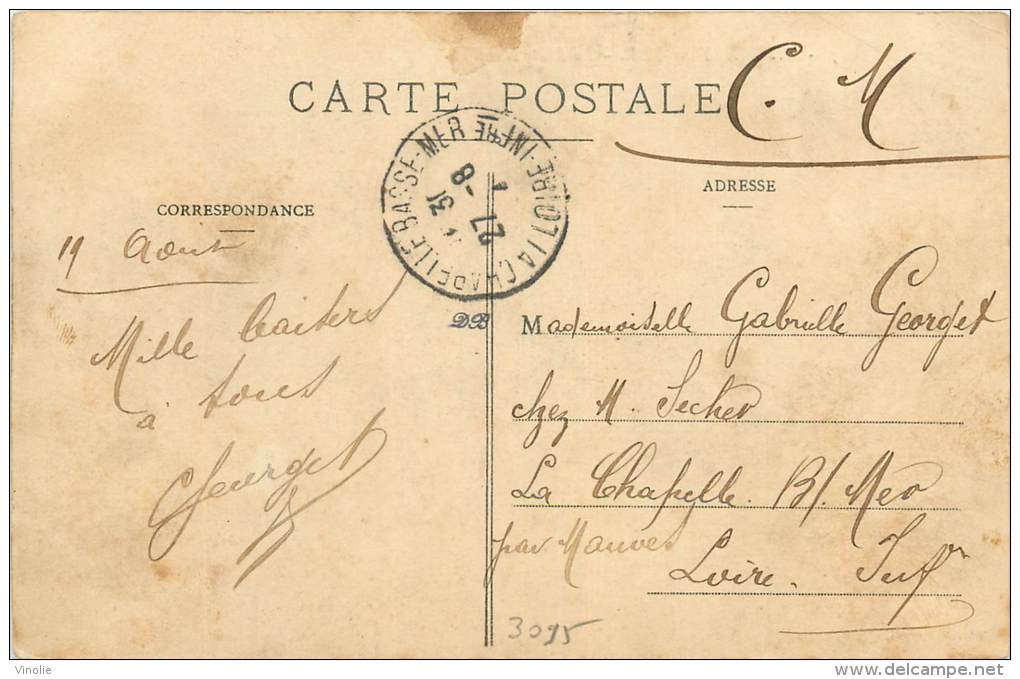 CARTE POSTALE
C. M
CORRESPONDANCE
ADRESSE
LA CHAPELLE BASSE-MER LOIRE-INFRE
27 -8
19 Août
Mille baisers
à tous
Georget
DB
Mademoiselle Gabrielle Georget
chez M. Secher
La Chapelle B/. Mer
par Mauves
Loire. Infre
3095
Vinolie
www.delcampe.net